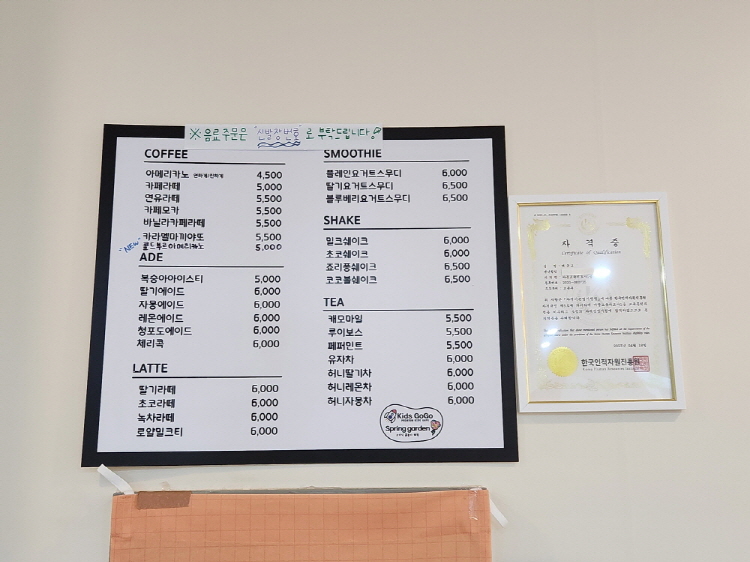 ※음료주문은 "신발장번호"로 부탁드립니다!
COFFEE
아메리카노 4,500
카페라떼 5,000
연유라떼 5,500
카페모카 5,500
바닐라카페라떼 5,500
카라멜마끼야또 5,500
"NEW" 콜드브루아메리카노 5,000
ADE
복숭아아이스티 5,000
딸기에이드 6,000
자몽에이드 6,000
레몬에이드 6,000
청포도에이드 6,000
체리콕 6,000
LATTE
딸기라떼 6,000
초코라떼 6,000
녹차라떼 6,000
로얄밀크티 6,000
SMOOTHIE
플레인요거트스무디 6,000
딸기요거트스무디 6,500
블루베리요거트스무디 6,500
SHAKE
밀크쉐이크 6,000
초코쉐이크 6,000
죠리퐁쉐이크 6,500
코코볼쉐이크 6,500
TEA
캐모마일 5,500
루이보스 5,500
페퍼민트 5,500
유자차 6,000
허니딸기차 6,000
허니레몬차 6,000
허니자몽차 6,000
Kids GoGo
Spring garden
자격증
Certificate of Qualification
한국인적자원진흥원